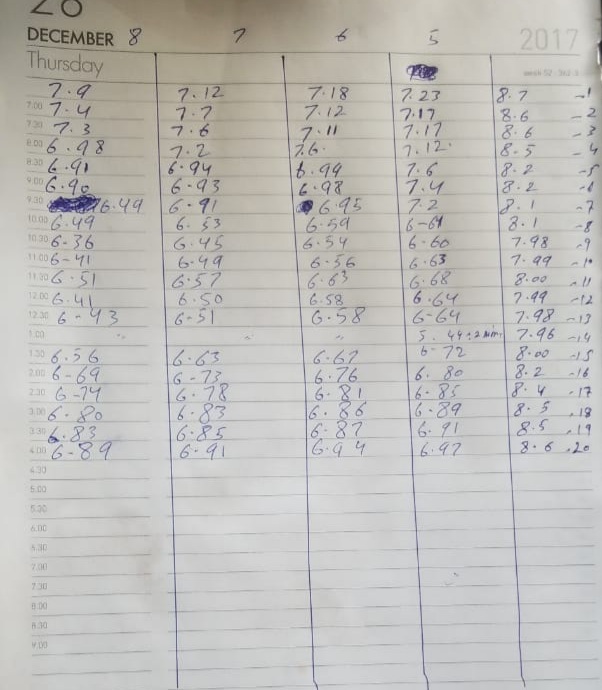 28
DECEMBER 8 7 6 5 2017
Thursday
7.9 7.12 7.18 7.23 8.7 -1
7.00 7.4 7.7 7.12 7.17 8.6 -2
7.30 7.3 7.6 7.11 7.17 8.6 -3
8.00 6.98 7.2 7.6. 7.12. 8.5 -4
8.30 6.91 6.94 6.99 7.6 8.2 -5
9.00 6.90 6-93 6.98 7.4 8.2 -6
9.30 6.49 6-91 6.95 7.2 8.1 -7
10.00 6.49 6.53 6.59 6-61 8.1 -8
10.30 6-36 6.45 6-54 6-60 7.98 -9
11.00 6-41 6.49 6-56 6.63 7.99 -10
11.30 6.51 6.57 6.63 6.68 8.00 -11
12.00 6.41 6.50 6.58 6.64 7.99 -12
12.30 6-43 6-51 6.58 6-64 7.98 -13
1.00 " " 5.44+2min 7.96 -14
1.30 6.56 6.63 6-67 6-72 8.00 -15
2.00 6-69 6-73 6.76 6.80 8.2 -16
2.30 6-74 6.78 6.81 6-85 8.4 -17
3.00 6.80 6.83 6.86 6.89 8.5 .18
3.30 6.83 6.85 6.87 6.91 8.5 .19
4.00 6-89 6.91 6.94 6.97 8.6 .20
4.30
5.00
5.30
6.00
6.30
7.00
7.30
8.00
8.30
9.00